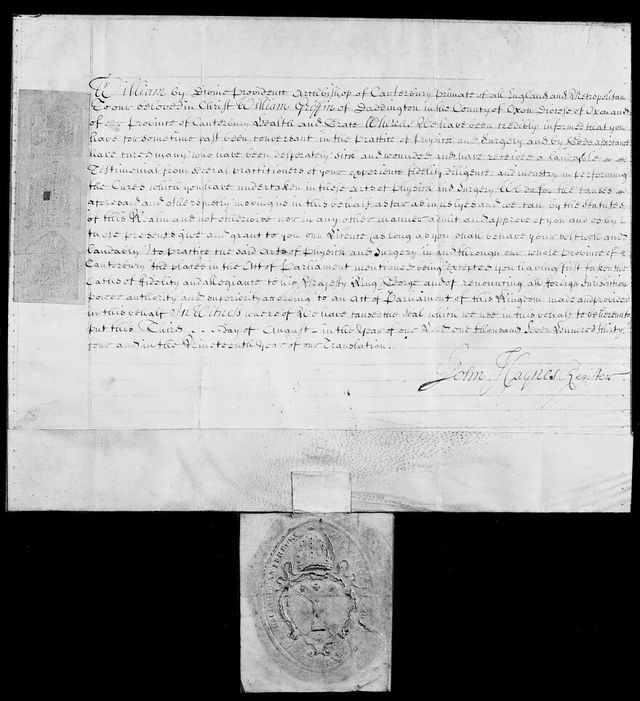 William by Divine Providence Archbishop of Canterbury Primate of all England and Metropolitan
To our beloved in Christ William Griffin of Daddington in the County of Oxon Diocese of Oxon and
of our Province of Canterbury Health and Grace Whereas We have been credibly informed that you
have for sometime past been conversant in the Practice of Physick and Surgery and by Gods assistance
have cured many who have been desperately sick and wounded and have received a laudable
Testimonial from several practitioners of your experience fidelity Diligence and industry in performing
the Cures which you have undertaken in these Arts of Physick and Surgery We do for the causes
aforesaid and others justly moving us in this behalf as far as in us lyes and we can by the Statutes
of this Realm and not otherwise nor in any other manner admit and approve of you and do by
these presents give and grant to you our License as long as you shall behave your self well and
laudably to practice the said Arts of Physick and Surgery in and through our whole Province of
Canterbury the places in the Act of Parliament mentioned being excepted you having first taken the
Oaths of fidelity and allegiance to his Majesty King George and of renouncing all foreign Jurisdiction
power authority and superiority according to an Act of Parliament of this Kingdom made and provided
in this behalf In Witness whereof We have caused the Seal which we use in this behalf to be hereunto
put this Third . . . Day of August in the Year of our Lord one thousand seven hundred thirty
four and in the Nineteenth Year of our Translation.
John Haynes Register